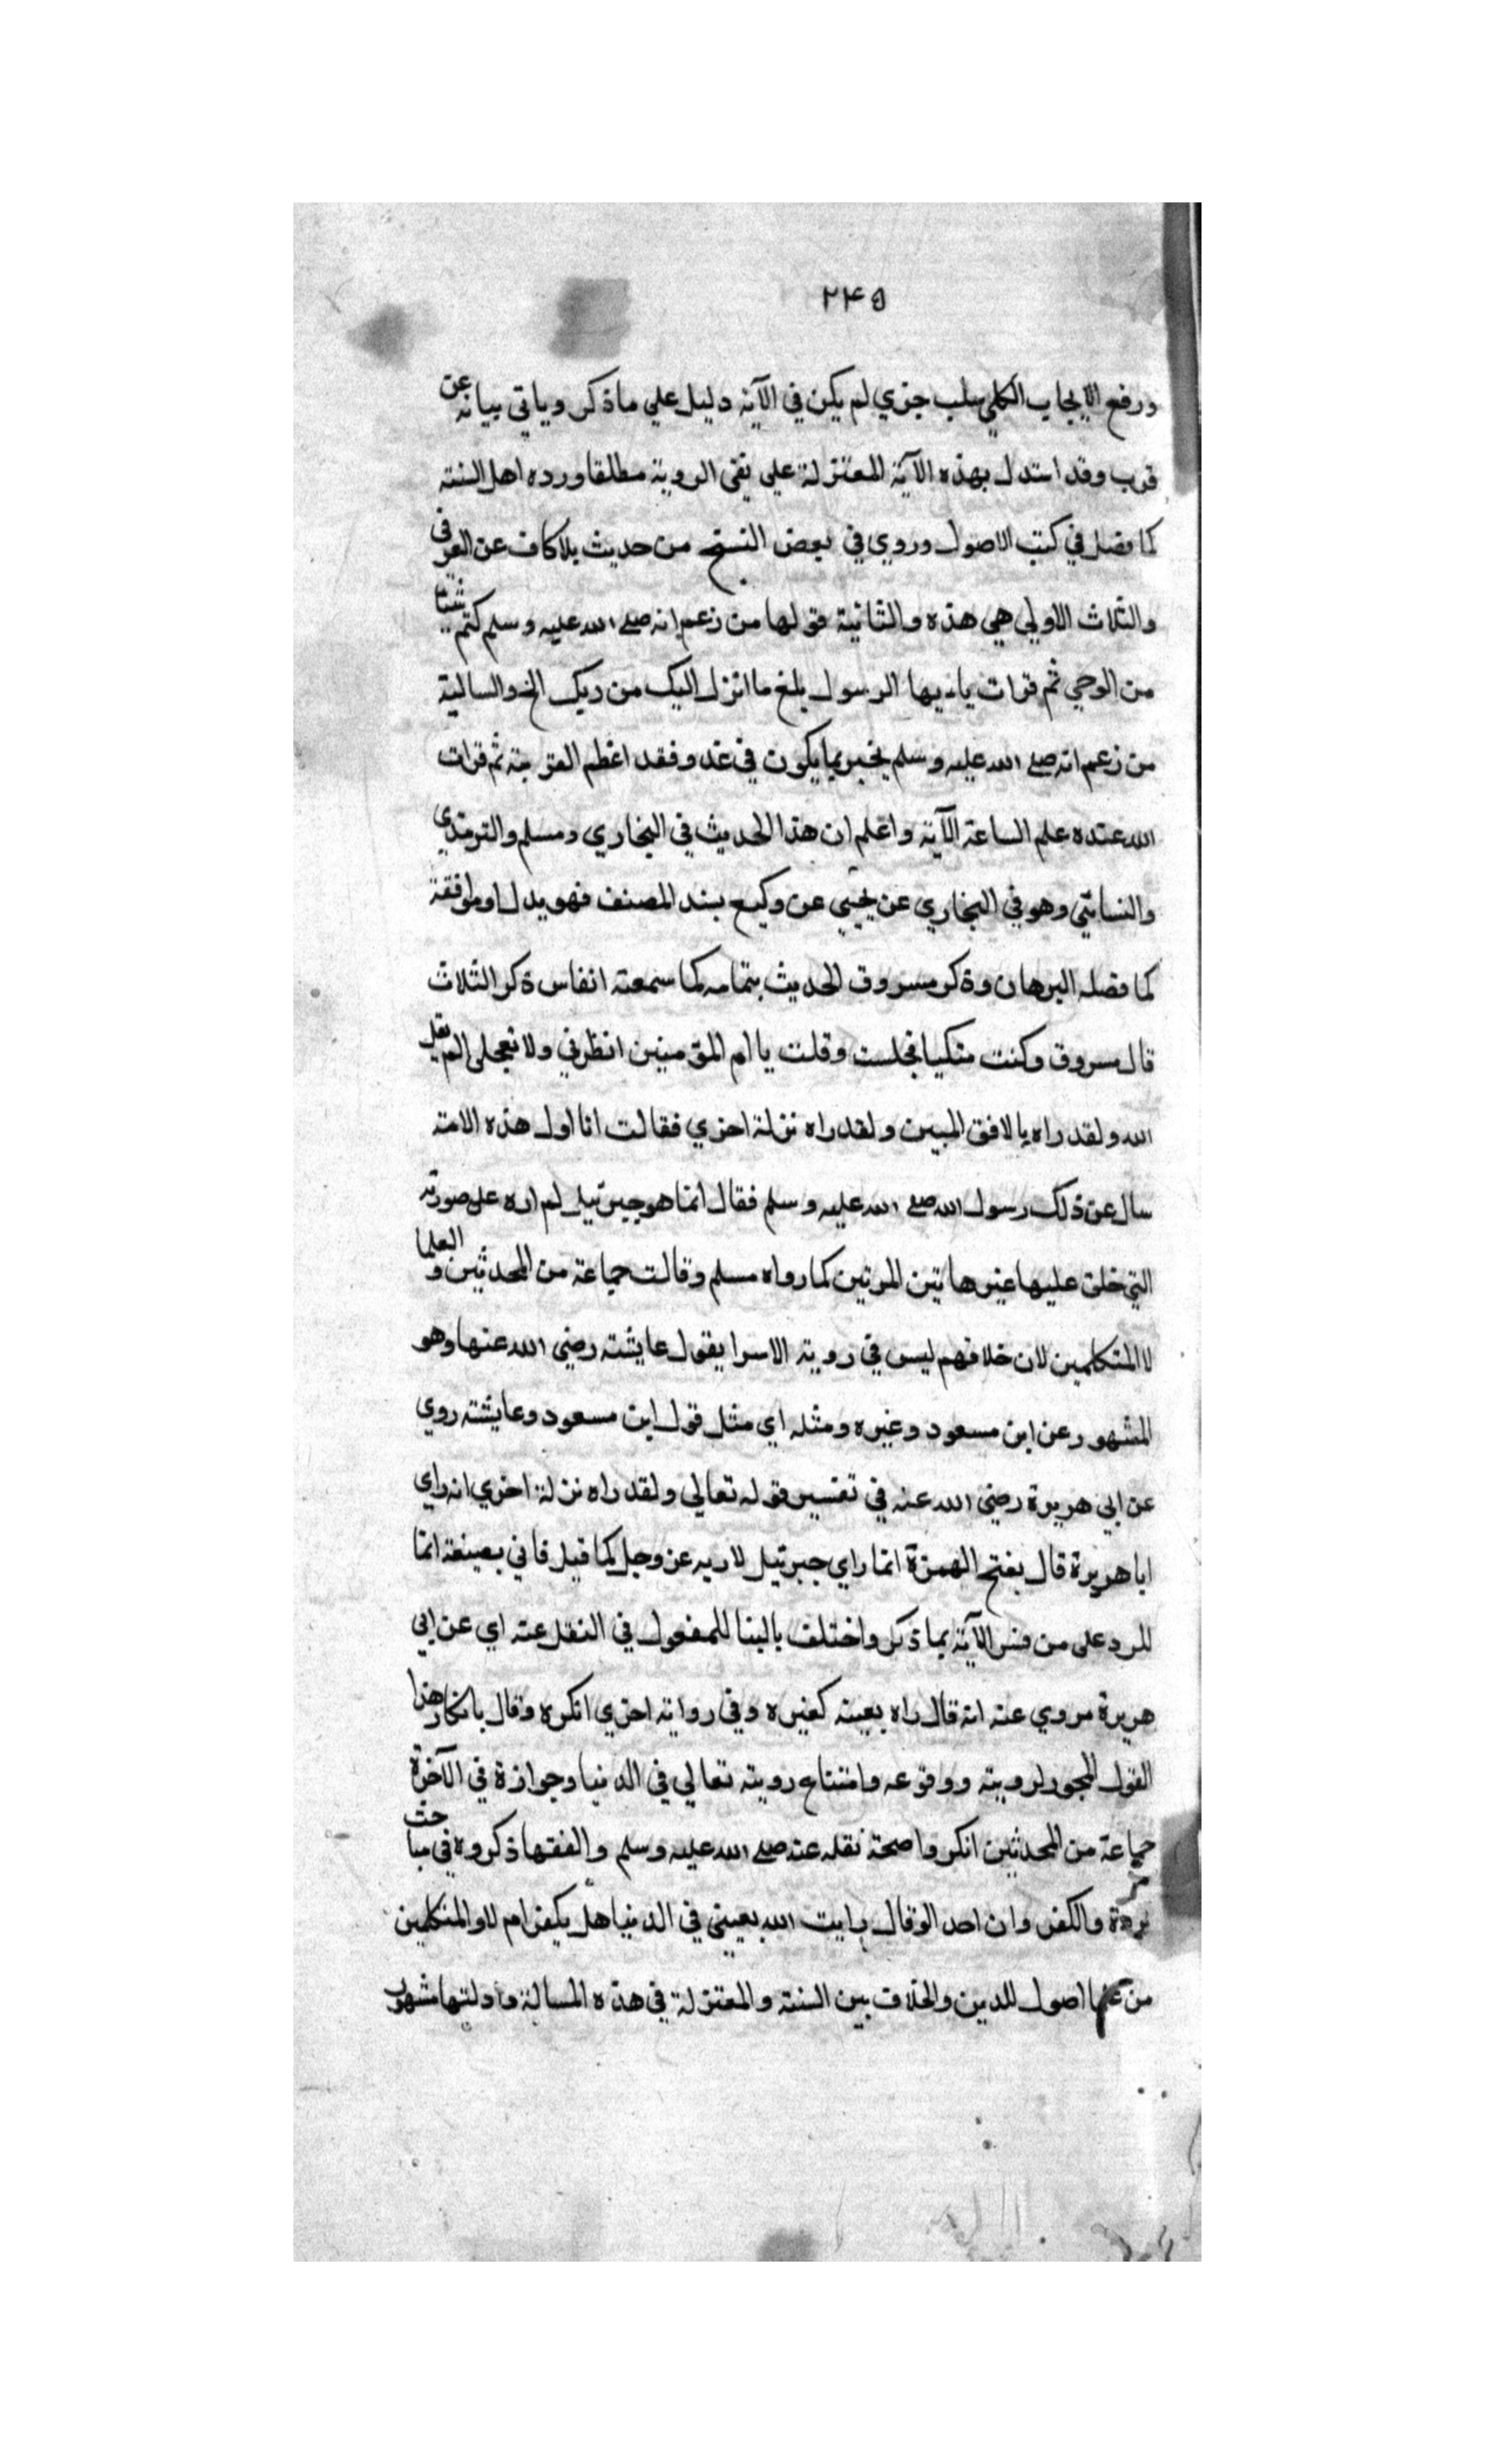 ٢٤٥
ورفع الايجاب الكلي سلب جزي لم يكن في الآية دليل علي ماذكر وياتي بيانه عن
قرب وقد استدل بهذه الآية المعتزلة علي نفى الروية مطلقا ورده اهل السنة
كما فصل في كتب الاصول وروي في بعض النسخ من حديث بلا كاف عن العرفي
والثلاث الاولي هي هذه والثانية قولها من زعم انه صلے الله عليه وسلم كتم شيئا
من الوحي ثم قرات يا ايها الرسول بلغ ما انزل اليك من ربك الخ والسالية
من زعم انه صلے الله عليه وسلم يخبر بما يكون في غد و فقد اعظم الفرية ثم قرات
الله عنده علم الساعة الآية واعلم ان هذا الحديث في البخاري ومسلم والترمذي
والنسائي وهو في البخاري عن يحيي عن وكيع بسند المصنف فهو بدل او موافقة
كما فصله البرهان وذكر مسروق الحديث بتمامه كما سمعته انفاس ذكر الثلاث
قال مسروق وكنت متكيا فجلست وقلت يا ام المؤمنين انظرني ولا تعجلى الم يقل
الله ولقد راه بالافق المبين ولقد راه نزلة اخري فقالت انا اول هذه الامة
سال عن ذلك رسول الله صلے الله عليه وسلم فقال انما هو جبرئيل لم اره على صورته
التي خلق عليها غير هاتين المرتين كما رواه مسلم وقالت جماعة من المحدثين و العلما
لا المتكلمين لان خلافهم ليس في روية الاسرا يقول عايشة رضي الله عنها وهو
المشهور عن ابن مسعود وغيره ومثله اي مثل قول ابن مسعود وعايشة روي
عن ابي هريرة رضي الله عنه في تفسير قوله تعالي ولقد راه نزلة اخري انه راي
ابا هريرة قال بفتح الهمزة انما راي جبرئيل لا ربه عز وجل كما قيل فاني بصيغة انما
للرد على من فسر الآية بما ذكر واختلف بالبنا للمفعول في النقل عنه اي عن ابي
هريرة مروي عنه انه قال راه بعينه كغيره وفي رواية اخري انكره وقال بانكار هذا
القول المجوز لرويته ووقوعه وامتناع رويته تعالي في الدنيا وجوازه في الآخرة
جماعة من المحدثين انكروا صحة نقله عنه صلے الله عليه وسلم والفقها ذكروه في مباحث
والكفر وان احد الوقال رايت الله بعيني في الدنيا هل يكفر ام لا والمتكلمين
من اصول للدين والخلاف بين السنة والمعتزلة في هذه المسالة وادلتها مشهور